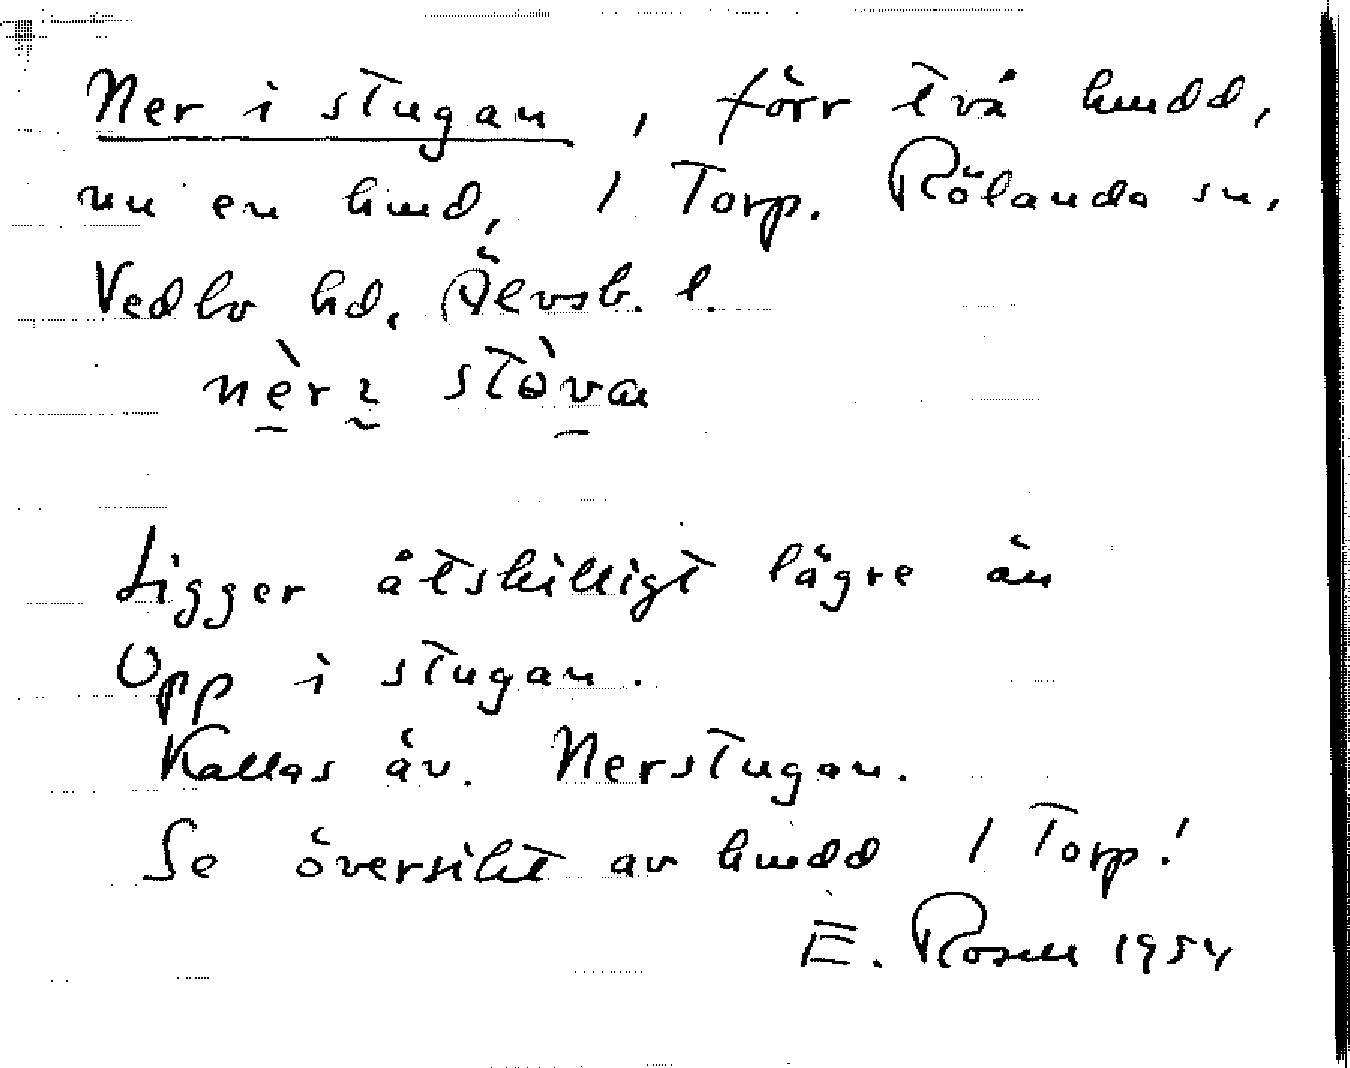 Ner i stugan, förr två hmdd,
nu en hmd, 1 Torp. Rölanda sn,
Vedbo hd, Älvsb. l.
nèr ɩ stòvan
Ligger åtskilligt lägre än
Opp i stugan.
Kallas äv. Nerstugan.
Se översikt av hmdd 1 Torp!
E. Rosell 1954